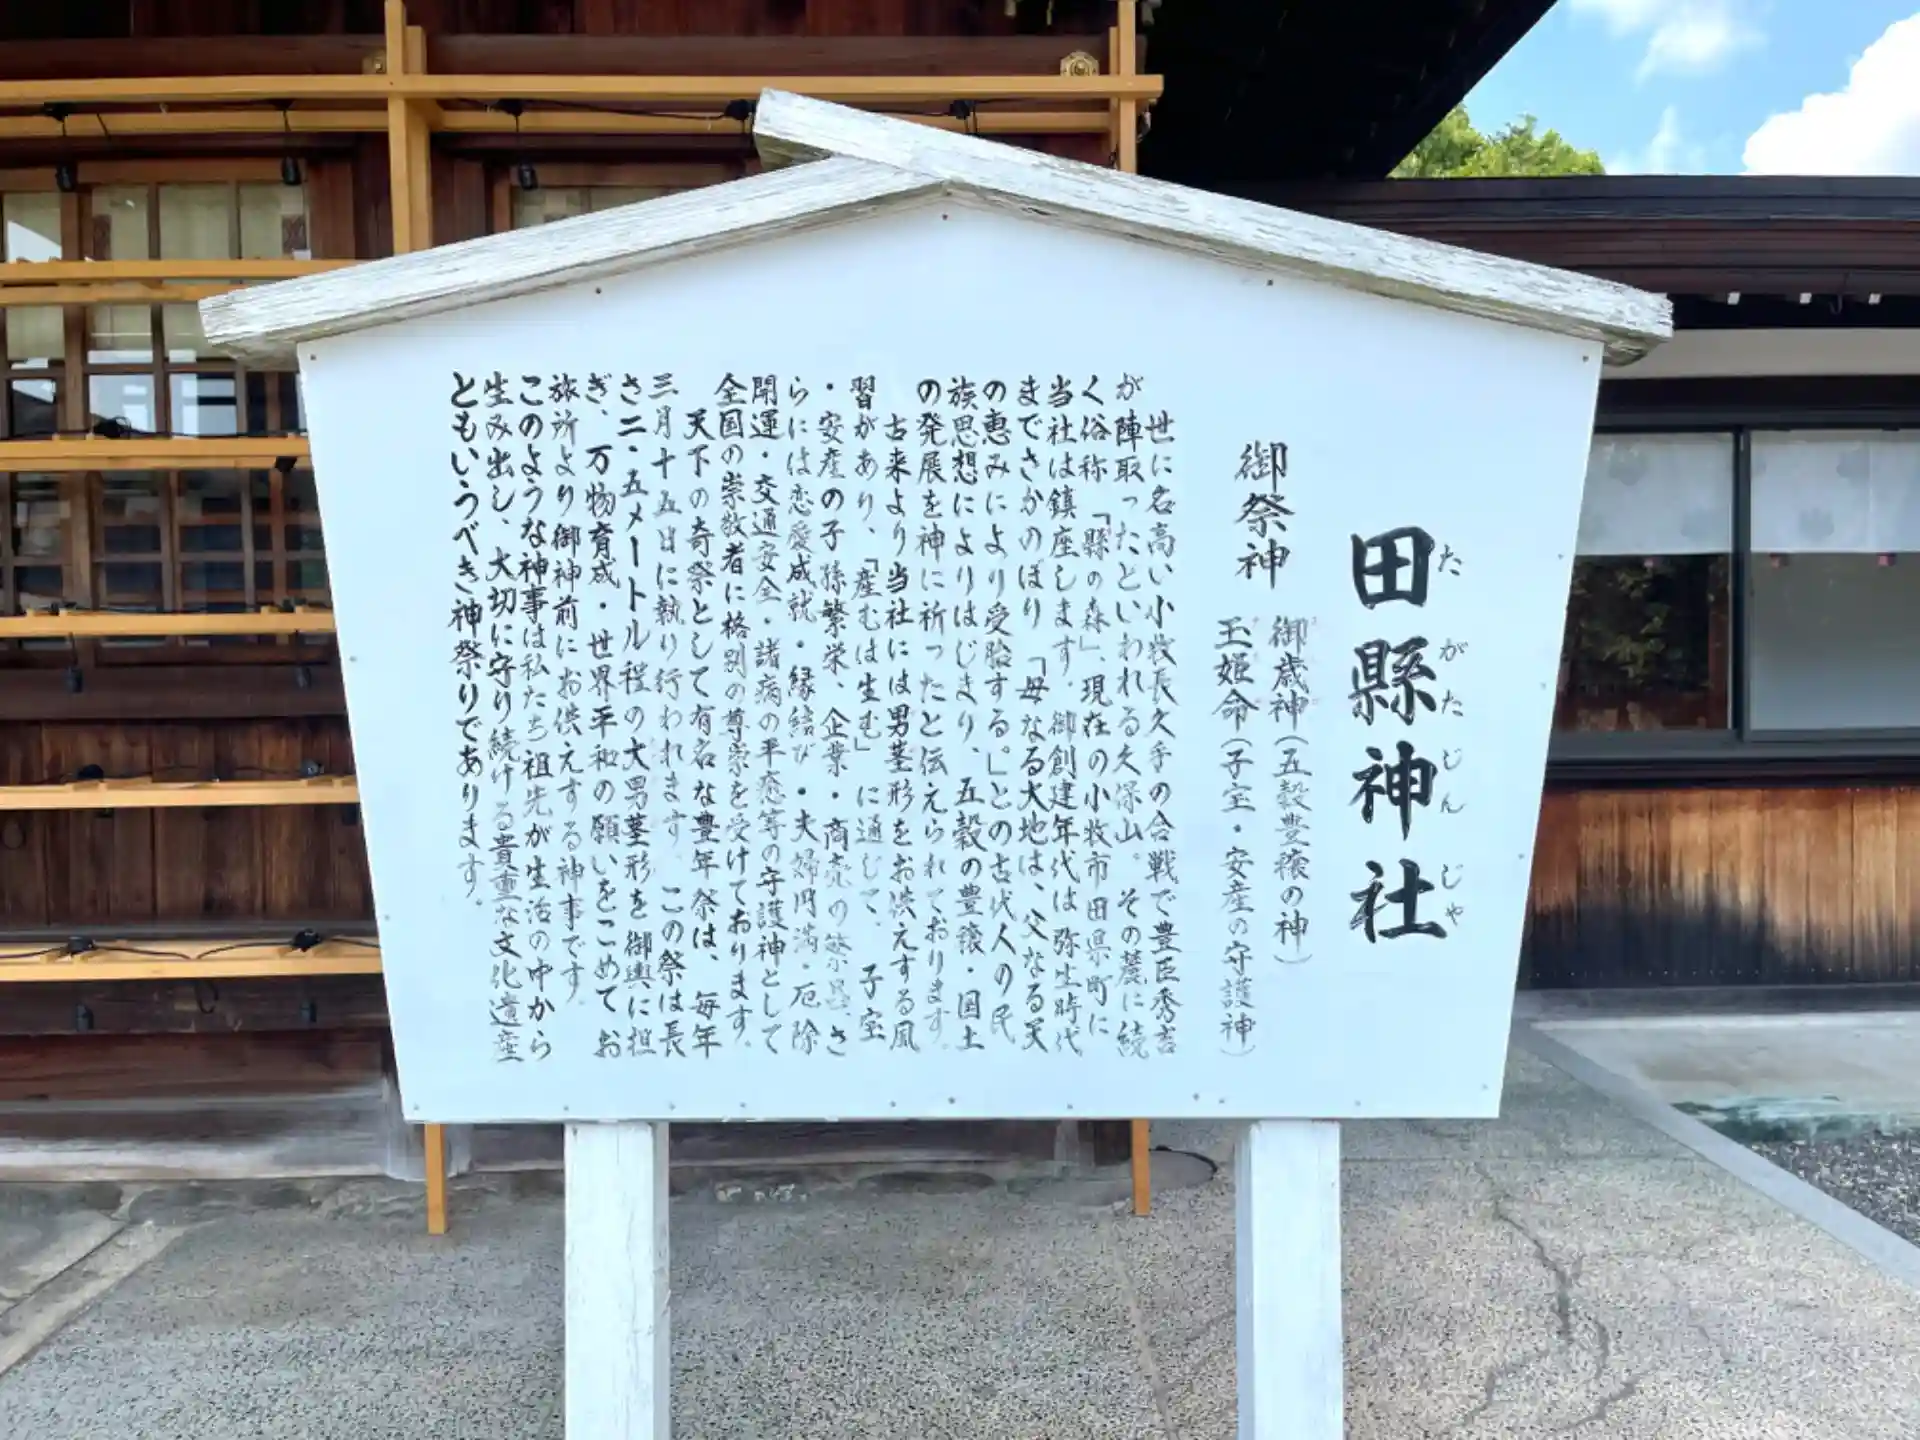 田縣神社
たがたじんじゃ
御祭神
御歳神（五穀豊穣の神）
玉姫命（子宝・安産の守護神）
世に名高い小牧長久手の合戦で豊臣秀吉
が陣取ったといわれる久保山。その麓に続
く俗称「縣の森」、現在の小牧市田県町に
当社は鎮座します。御創建年代は弥生時代
までさかのぼり「母なる大地は、父なる天
の恵みにより受胎する。」との古代人の民
族思想によりはじまり、五穀の豊穣・国土
の発展を神に祈ったと伝えられております。
古来より当社には男茎形をお供えする風
習があり、「産むは生む」に通じて、子宝
・安産の子孫繁栄、企業・商売の繁昌、さ
らには恋愛成就・縁結び・夫婦円満・厄除
開運・交通安全・諸病の平癒等の守護神として
全国の崇敬者に格別の尊崇を受けております。
天下の奇祭として有名な豊年祭は、毎年
三月十五日に執り行われます。この祭は長
さ二・五メートル程の大男茎形を御輿に担
ぎ、万物育成・世界平和の願いをこめてお
旅所より御神前にお供えする神事です。
このような神事は私たち祖先が生活の中から
生み出し、大切に守り続ける貴重な文化遺産
ともいうべき神祭りであります。